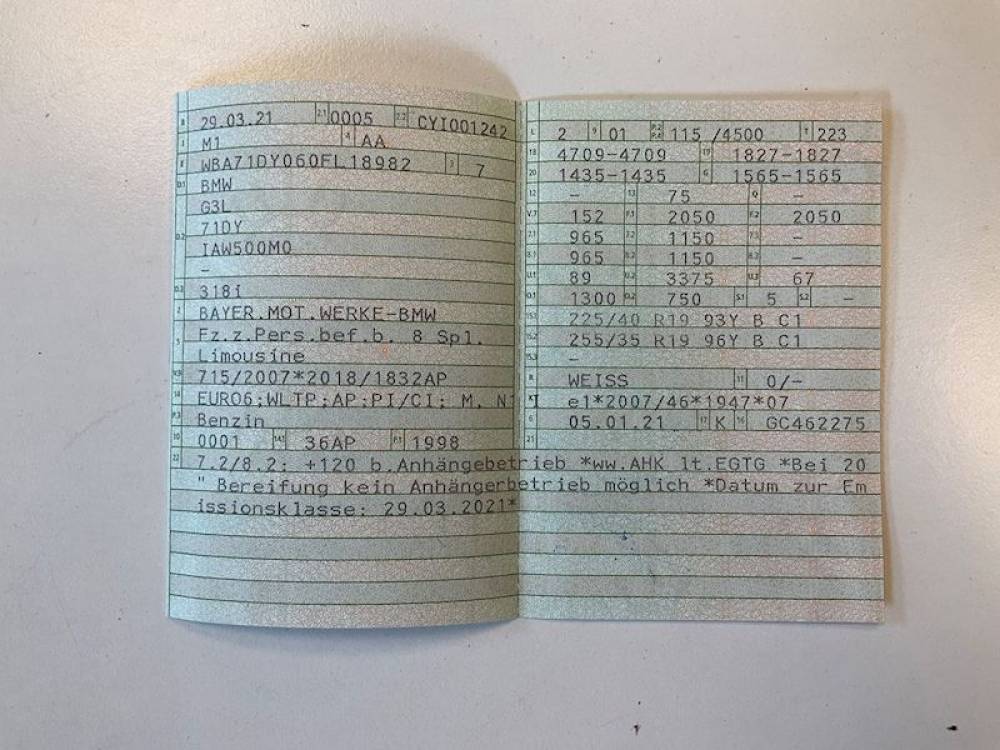 B 29.03.21 2.1 0005 2.2 CYI001242
J M1 4 AA
E WBA71DY060FL18982 3 7
D.1 BMW
G3L
D.2 71DY
IAW500M0
–
D.3 318i
2 BAYER.MOT.WERKE-BMW
5 Fz.z.Pers.bef.b. 8 Spl.
Limousine
V.9 715/2007*2018/1832AP
14 EURO6;WLTP;AP;PI/CI; M, N1
P.3 Benzin
10 0001 14.1 36AP P.1 1998
L 2 9 01 P.2 P.4 115 /4500 T 223
18 4709-4709 19 1827-1827
20 1435-1435 G 1565-1565
12 – 13 75 Q –
V.7 152 F.1 2050 F.2 2050
7.1 965 7.2 1150 7.3 –
8.1 965 8.2 1150 8.3 –
U.1 89 U.2 3375 U.3 67
O.1 1300 O.2 750 S.1 5 S.2 –
15.1 225/40 R19 93Y B C1
15.2 255/35 R19 96Y B C1
15.3 –
R WEISS 11 0/-
K e1*2007/46*1947*07
6 05.01.21 17 K 16 GC462275
21
22 7.2/8.2: +120 b.Anhängebetrieb *ww.AHK lt.EGTG *Bei 20
" Bereifung kein Anhängerbetrieb möglich *Datum zur Em
issionsklasse: 29.03.2021*